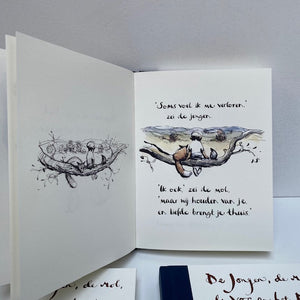 "Soms voel ik me verloren,"
zei de jongen.
"Ik ook," zei de mol,
"maar wij houden van je,
en liefde brengt je thuis."
De jongen, de mol,
De jongen, de m